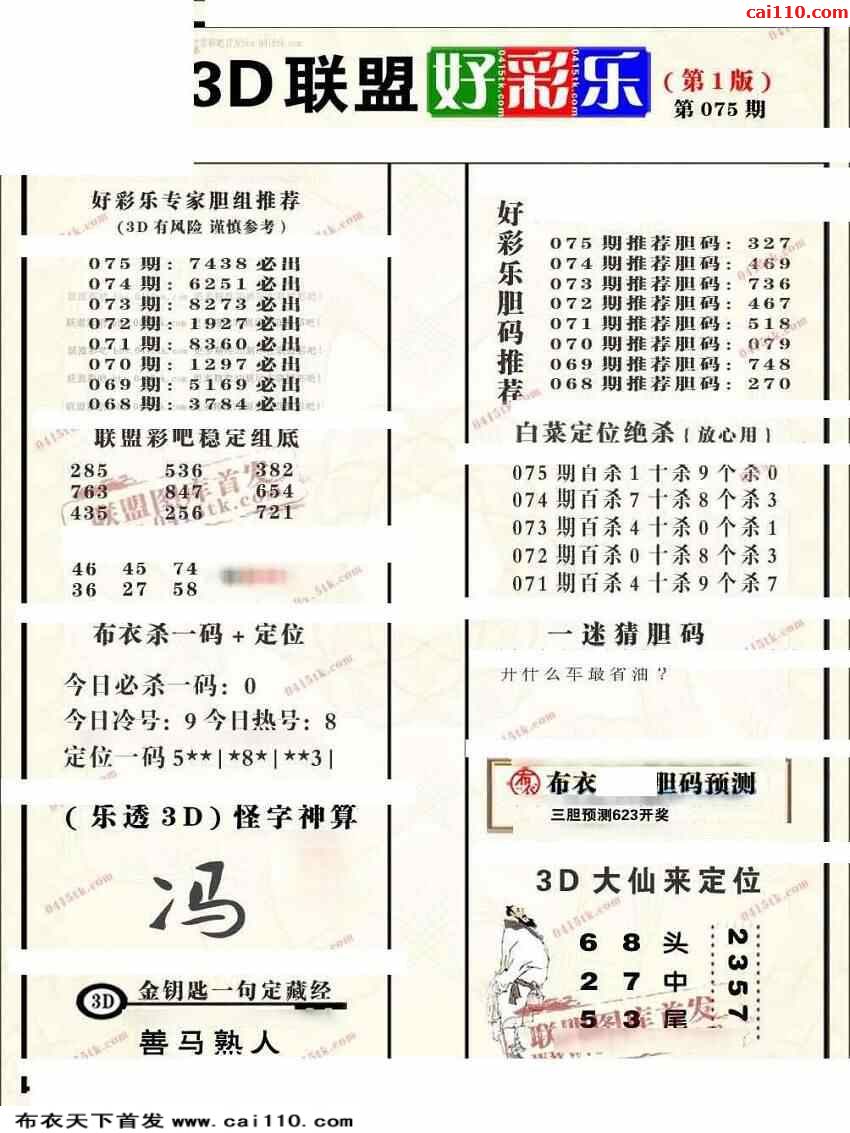 cai110.com
3D联盟好彩乐
0415tk.com 0415tk.com 0415tk.com
(第1版)
第075期
好彩乐专家胆组推荐
(3D有风险 谨慎参考)
075期: 7438必出
074期: 6251必出
073期: 8273必出
072期: 1927必出
071期: 8360必出
070期: 1297必出
069期: 5169必出
068期: 3784必出
联盟彩吧稳定组底
285 536 382
763 847 654
435 256 721
联盟图库首发
46 45 74
36 27 58
布衣杀一码+定位
今日必杀一码: 0
今日冷号: 9 今日热号: 8
定位一码5**|*8*|**3|
(乐透3D)怪字神算
冯
3D 金钥匙一句定藏经
善马熟人
好彩乐胆码推荐
075期推荐胆码: 327
074期推荐胆码: 469
073期推荐胆码: 736
072期推荐胆码: 467
071期推荐胆码: 518
070期推荐胆码: 079
069期推荐胆码: 748
068期推荐胆码: 270
白菜定位绝杀{放心用}
075期百杀1十杀9个杀0
074期百杀7十杀8个杀3
073期百杀4十杀0个杀1
072期百杀0十杀8个杀3
071期百杀4十杀9个杀7
一迷猜胆码
开什么车最省油?
布衣 布衣 胆码预测
三胆预测623开奖
3D大仙来定位
6 8 头
2 7 中
5 3 尾
2357
联盟图库首发
0415tk.com
1
布衣天下首发 www.cai110.com